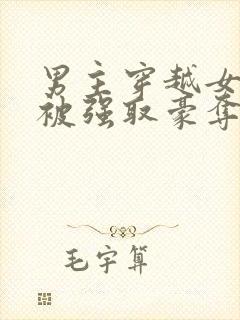 男主穿越女
被强取豪夺
毛宇算